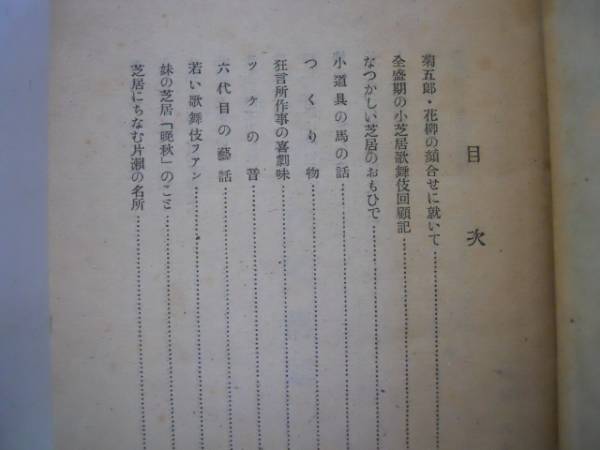 目次
菊五郎・花柳の顔合せに就いて
全盛期の小芝居歌舞伎回顧記
なつかしい芝居のおもひで
小道具の馬の話
つくり物
狂言所作事の喜劇味
ツケの音
六代目の藝話
若い歌舞伎フアン
妹の芝居「晩秋」のこと
芝居にちなむ片瀬の名所